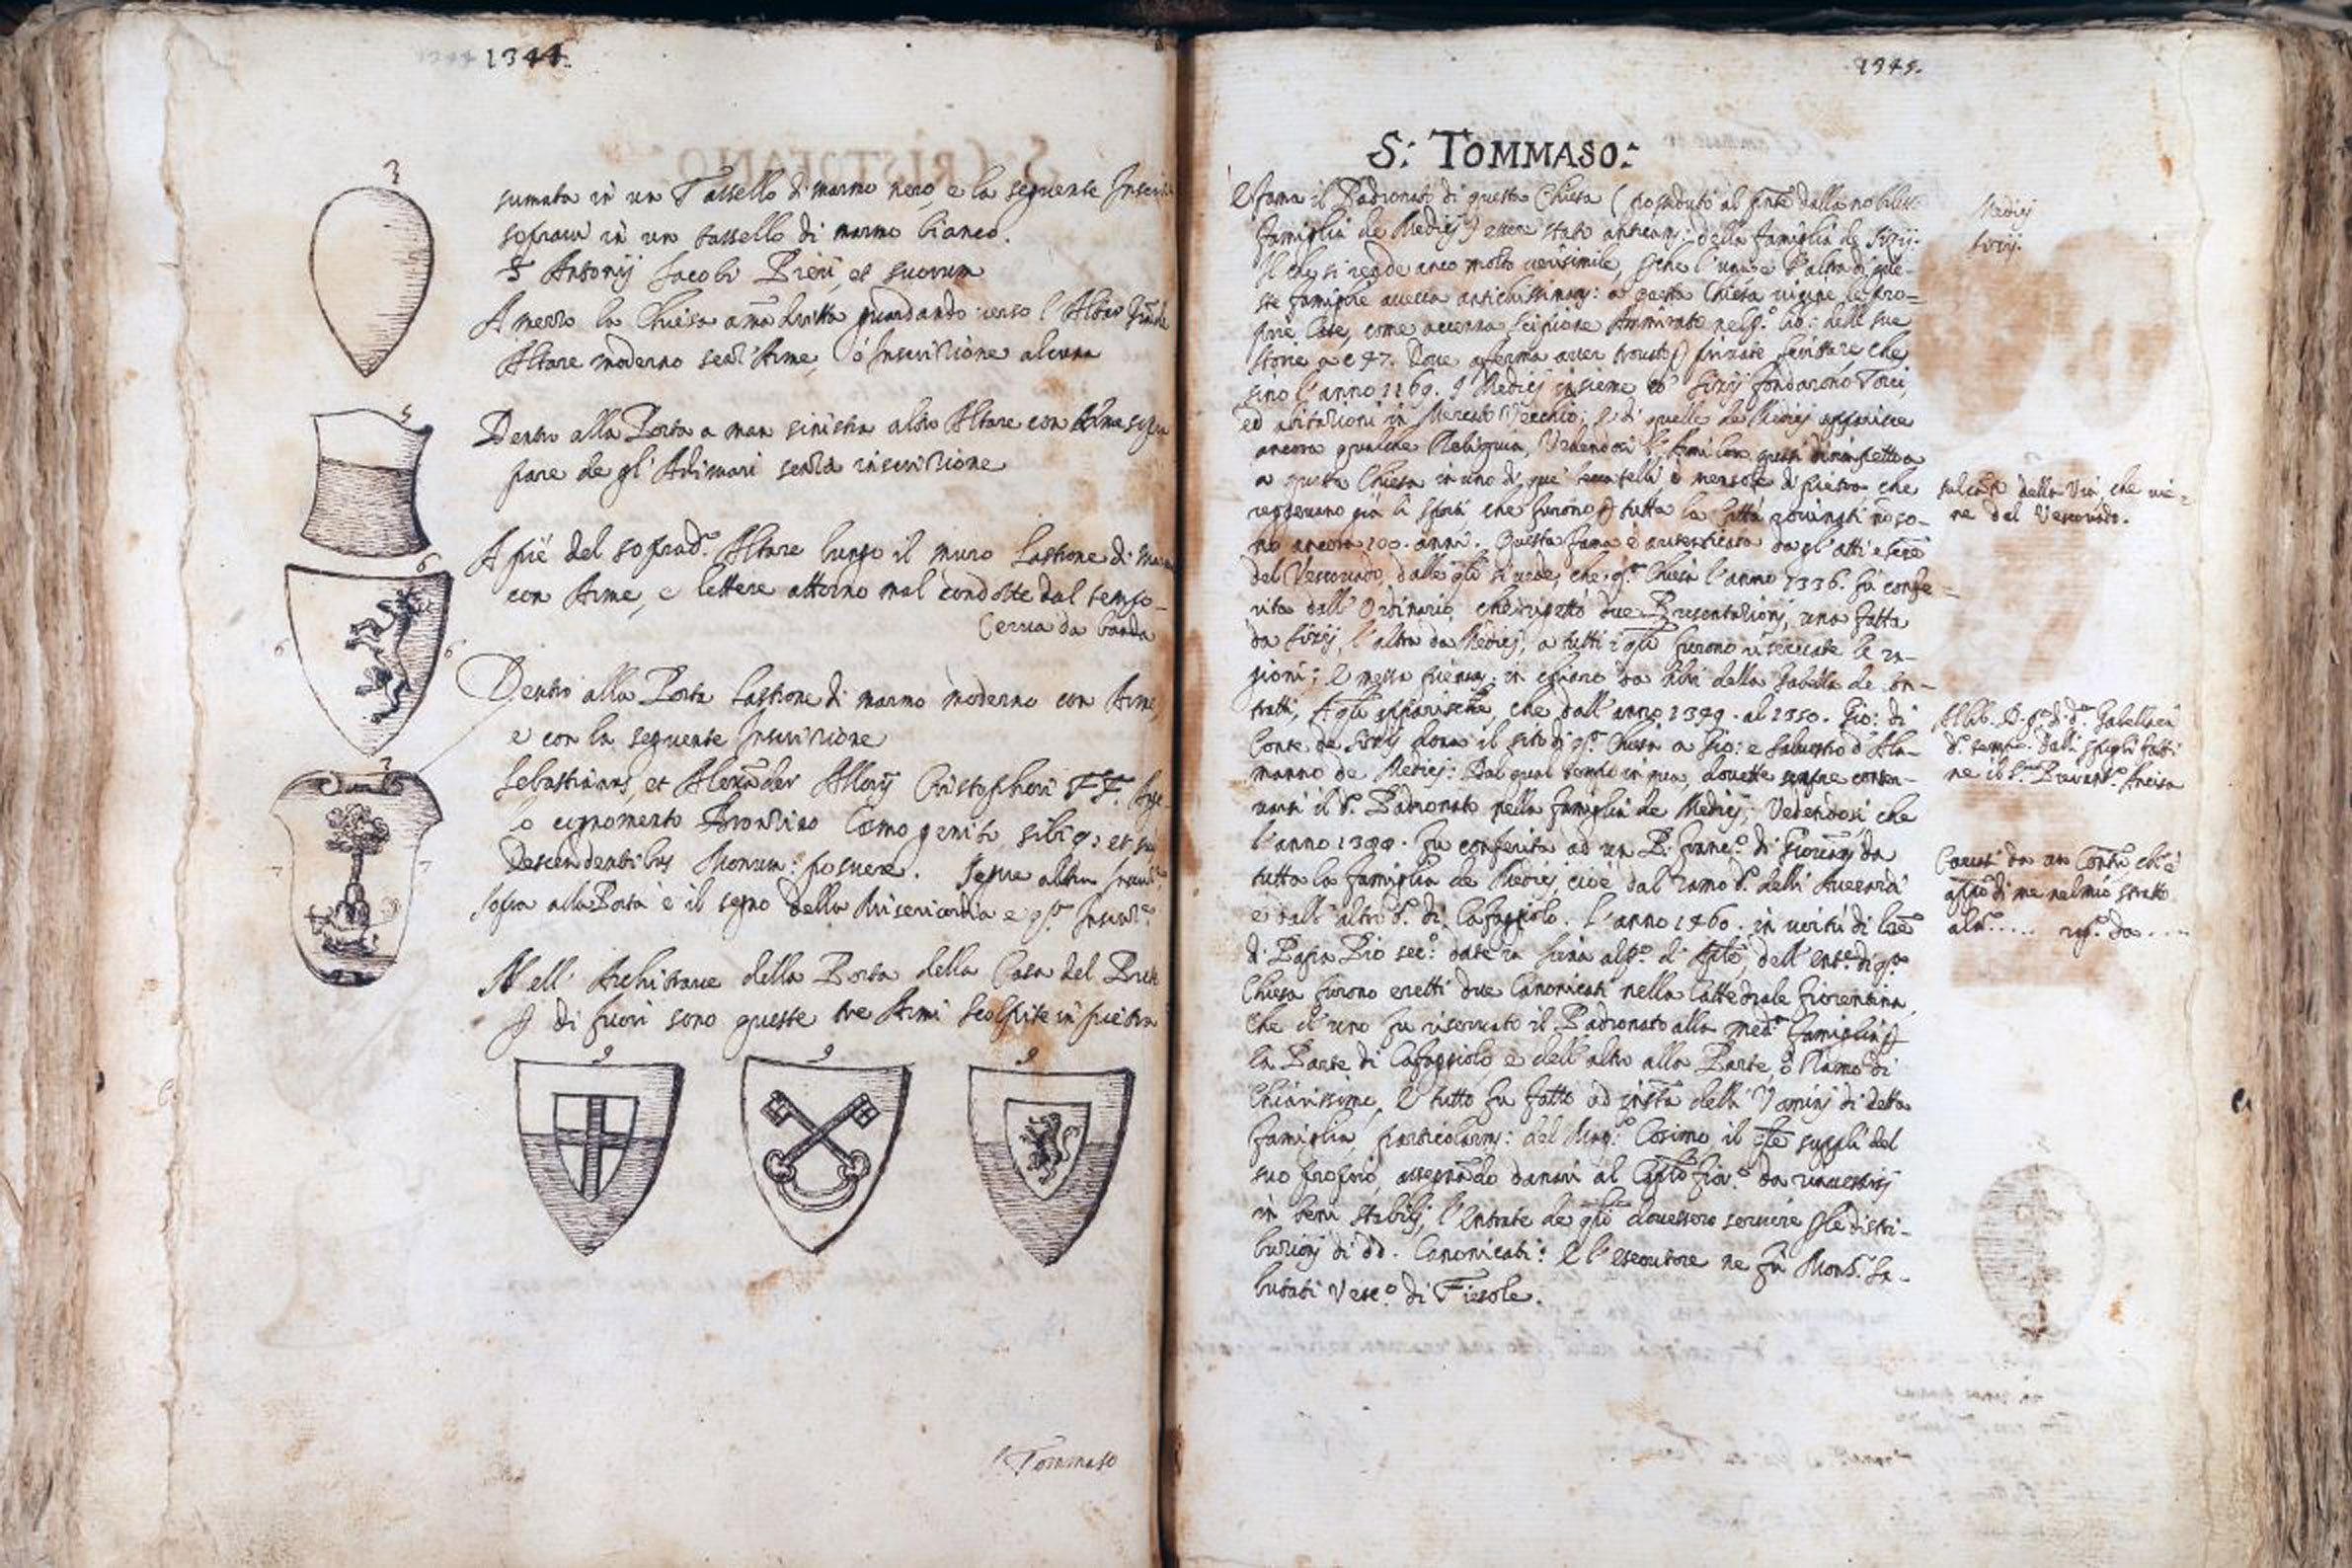 1344.
3
sumata in un Tassello di marmo nero, e la seguente Inscri
sopra in un tassello di marmo bianco.
S Antonij Jacobi Pieri, et suorum
A mezzo la Chiesa a mã dritta guardando verso l'Altar
Altare moderno senz'Arme, ó Inscrizione alcuna
5
Dentro alla Porta a man sinistra altro Altare con Arme sopra
pare de gl'Adimari senza inscrizione
A pié del soprad.º Altare lungo il muro Lastrone di mar
con Arme, e lettere attorno mal condotte dal tempo
6
6 6
Cerua da banda
Dentro alla Porta Lastrone di marmo moderno con Arme,
e con la seguente Inscrizione
7
7 7
Sebastianus, et Alexãder Allorij Cristophori FF. Ange
lo cognomento Bronzino Cosmo genito, sibiq; et su
Descendentibus Monum: posuere. Segue altra
Sopra alla Porta è il segno della Misericordia e q.ta
Nell'Architraue della Porta della Casa del Prete
di fuori sono queste tre Armi scolpite in pietra
9 9 9
S. Tommaso
1345.
S: TOMMASO:
È fama il Padronato di questa Chiesa (posseduto al pnte dalla nobiliss:
famiglia de Medici) essere stato anticam: della famiglia de Sizij:
Il che si rende anco molto uerisimile, che l'una e l'altra di que-
ste famiglie aueua antichissimam: a questa Chiesa uicine le pro-
prie Case, come accenna Scipione Ammirato nel p.º lib: delle sue
storie a c 47. Doue afferma auer trouato p priuate scritture, che
sino l'anno 1169. I Medici insieme cõ Sizij fondarono Torri,
ed abitazioni in Mercato Vecchio; e di quelle de Medici apparisce
ancora qualche Reliquia, Vedendosi l'Armi loro quasi dirimpetto a
a questa Chiesa in uno di que' beccatelli o mensole di pietra che
reggeuano già li sporti, che furono p tutta la Città rouinati nõ so-
no ancora 100. anni. Questa fama è autenticata da gl'atti e
del Vescouado, dalle qli si uede, che q.ta Chiesa l'anno 1336. fú confe-
rita dall'Ordinario, che rigettò due Presentazioni, una fatta
da Sizij, l'altra da Medici, a tutti i qli furono riseruate le ra-
gioni; E messa in chiaro da libri della Gabella de Con-
tratti, p qli apparisce, che dall'anno 1349. al 1350. Gio: di
Conte de Sizij dona il sito di q.ta Chiesa a Gio: e Saluestro d'Ala-
manno de Medici: Dal qual tempo in qua, douette sempre conser-
uarsi il d.º Padronato nella famiglia de Medici; Vedendosi che
l'anno 1390. fu conferita ad un P. Franc.º di Giouãni da
tutta la famiglia de Medici, cioè dal ramo d.º delli Auerardi
e dall'altro d.º di Cafaggiolo. L'anno 1460. in uertú di lrẽ
di Papa Pio sec.º date in Siena dell'entr.e di q.ta
Chiesa furono eretti due Canonicati nella Cattedrale fiorentina,
che d'uno fu riseruato il Padronato alla med.a famiglia p
la Parte di Cafaggiolo e dell'altro alla Parte, ò Ramo di
Chiarissimo, E tutto fu fatto ad instã delli Vomini di detta
famiglia, particolarm: del Mag.º Cosimo, il qle supplì del
suo proprio, assegnãdo danari al Caplo fior.º da rinuestirsi
in beni stabili, l'Entrate de qli douessero seruire p le distri-
buzioni di dd. Canonicati: E l'esecutore ne fu Mons. Sa-
lutati Vesc.º di Fiesole.
Medici
Sizij.
sul cãto della Via, che uie-
ne dal Vescouado.
Al lib. D. Gabella di
d.º tempo. Dalli spogli fatti
ne il
Cauat. da un Contr. ch'è
app.º di me nel mio stratto